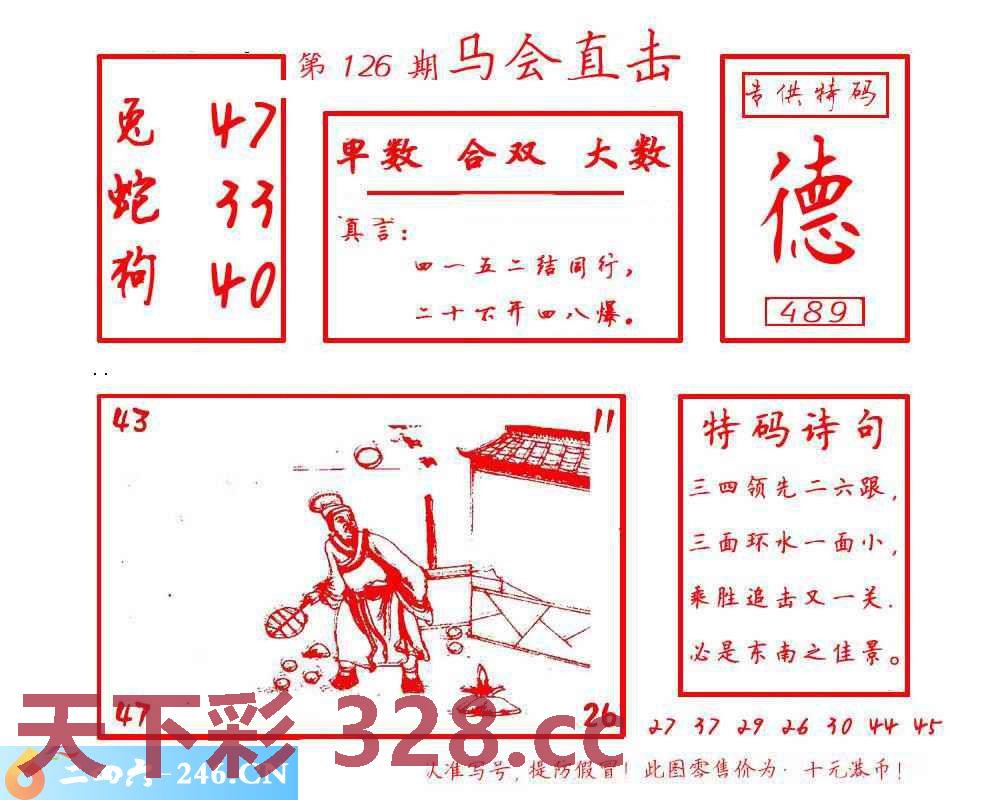 第 126 期 马会直击
兔 47
蛇 33
狗 40
单数 合双 大数
真言:
四一五二结同行,
二十不开四八爆。
专供特码
德
489
43 11
47 26
特码诗句
三四领先二六跟,
三面环水一面小,
乘胜追击又一关.
必是东南之佳景。
27 37 29 26 30 44 45
天下彩 328.cc
二四六-246.CN
认准写号,提防假冒!此图零售价为·十元港币!